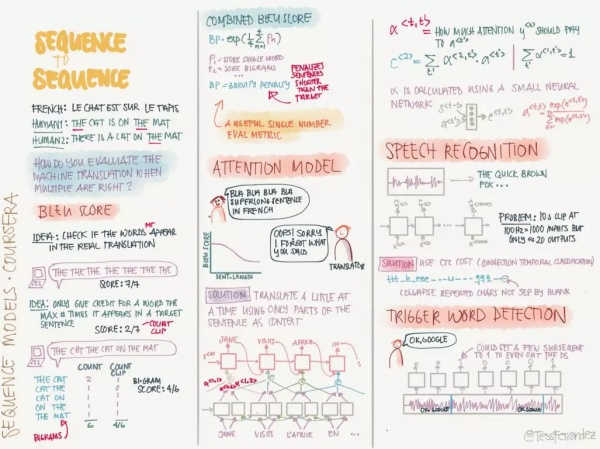 SEQUENCE MODELS · COURSERA
SEQUENCE
TO
SEQUENCE
FRENCH: LE CHAT EST SUR LE TAPIS
HUMAN1: THE CAT IS ON THE MAT
HUMAN2: THERE IS A CAT ON THE MAT
HOW DO YOU EVALUATE THE
MACHINE TRANSLATION WHEN
MULTIPLE ARE RIGHT?
BLEU SCORE
IDEA: CHECK IF THE WORDS MT APPEAR
IN THE REAL TRANSLATION
THE THE THE THE THE THE THE
SCORE: 7/7
IDEA: ONLY GIVE CREDIT FOR A WORD THE
MAX # TIMES IT APPEARS IN A TARGET
SENTENCE
SCORE: 2/7 COUNT CLIP
THE CAT THE CAT ON THE MAT
COUNT COUNT CLIP
THE CAT 2 1
THE
CAT ON 1 1
ON THE 1 1
THE MAT 1 1
6 4/6
BIGRAM
SCORE: 4/6
BIGRAMS
COMBINED BLEU SCORE
BP · exp(
P1 = SCORE SINGLE WORD
P2 = SCORE BIGRAMS
...
BP = BREVITY PENALTY
PENALIZES
SENTENCES
SHORTER
THAN THE
TARGET
A USEFUL SINGLE NUMBER
EVAL METRIC
ATTENTION MODEL
BLA BLA BLA BLA
SUPERLONG SENTENCE
IN FRENCH
BLEU SCORE
SENT. LENGTH
OOPS! SORRY
I FORGOT WHAT
YOU SAID
TRANSLATOR
SOLUTION: TRANSLATE A LITTLE AT
A TIME USING ONLY PARTS OF THE
SENTENCE AS CONTEXT
JANE VISITS AFRICA IN ...
JANE VISITE L'AFRIQUE EN ...
α<t,t'> = HOW MUCH ATTENTION y<t> SHOULD PAY
TO a<t'>
α IS CALCULATED USING A SMALL NEURAL
NETWORK
SPEECH RECOGNITION
THE QUICK BROWN
FOX ...
PROBLEM: 10s CLIP AT
100Hz = 1000 INPUTS BUT
ONLY ~ 20 OUTPUTS
SOLUTION USE CTC COST (CONNECTION TEMPORAL CLASSIFICATION)
COLLAPSE REPEATED CHARS NOT SEP BY BLANK
TRIGGER WORD DETECTION
OK, GOOGLE
COULD SET A FEW SUBSEQUENT
TO 1 TO EVEN OUT THE 0s
OK GOOGLE OK GOOGLE
@TessFerrandez